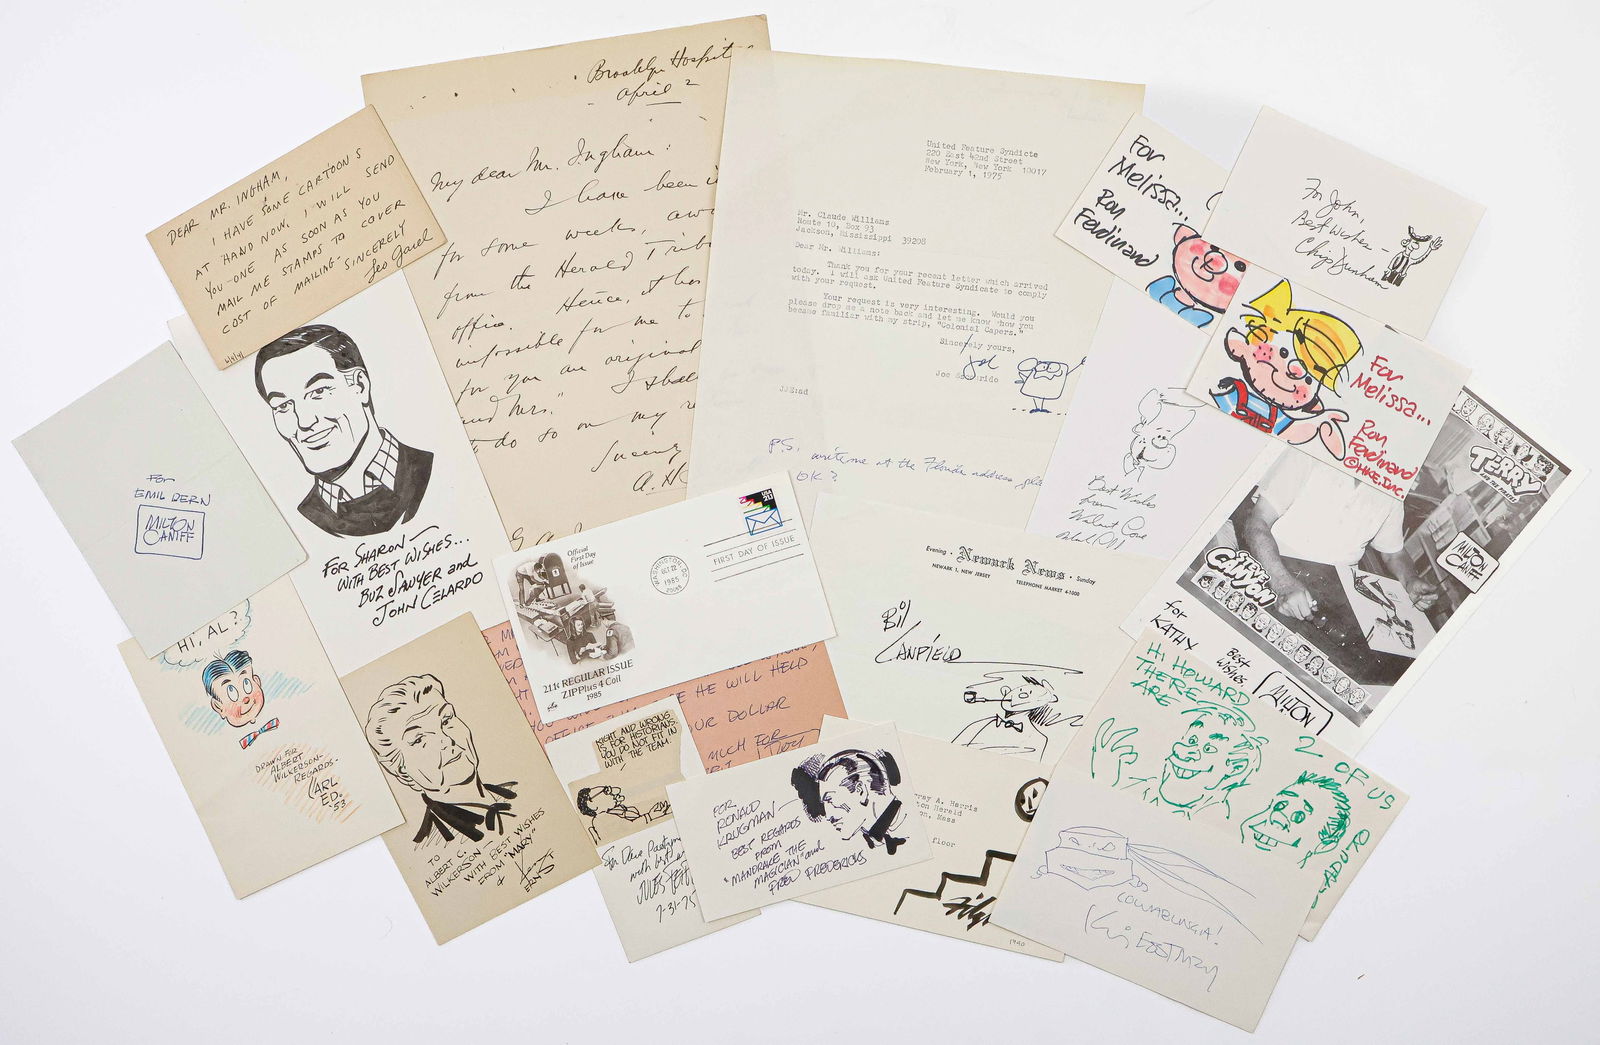 DEAR MR. INGHAM,
I HAVE SOME CARTOONS
AT HAND NOW, I WILL SEND
YOU-ONE AS SOON AS YOU
MAIL ME STAMPS TO COVER
COST OF MAILING
SINCERELY
Brooklyn Hospit
April 2
My dear Mr. Ingham:
I have been i
for some weeks, awa
from the Herald Trib
office. Hence, it has
impossible for me to
for you an original
and Mrs."
I shall
to do so on my re
A. H
United Feature Syndicte
220 East 42nd Street
New York, New York 10017
February 1, 1975
Mr. Claude Williams
Route 10, Box 93
Jackson, Mississippi 39208
Dear Mr. Williams:
Thank you for your recent letter which arrived
today. I will ask United Feature Syndicate to comply
with your request.
Your request is very interesting. Would you
please drop me a note back and let me know how you
became familiar with my strip, "Colonial Capers."
Sincerely yours,
Joe
JJE:ad
P.S. write me at the Florida address
OK?
For
Melissa...
Ron
Ferdinand
For John,
Best Wishes -
Chip Dunham
For
Melissa...
Ron
Ferdinand
© HKE, INC.
Best Wishes
from
TERRY
AND THE PIRATES
MILTON
CANIFF
STEVE
CANYON
for
KATHY
Best
Wishes
MILTON
For
EMIL DERN
MILTON
CANIFF
FOR SHARON-
WITH BEST WISHES...
BUZ SAWYER and
JOHN CELARDO
HI, AL?
DRAWN FOR
ALBERT
WILKERSON-
REGARDS-
CARL
ED.
-'53
TO
ALBERT C.
WILKERSON-
WITH BEST WISHES
FROM "MARY"
&
ERNST
Official
First Day
of Issue
WASHINGTON, DC
OCT 22
1985
FIRST DAY OF ISSUE
USA
21.1¢ REGULAR ISSUE
ZIP Plus 4 Coil
1985
E HE WILL HELD
OUR DOLLAR
MUCH FOR
RIGHT AND WRONG
IS FOR HISTORIANS.
YOU DO NOT FIT IN
WITH THE TEAM.
For Dave
with best
7-31-75
FOR
RONALD
KRUGMAN-
BEST REGARDS
FROM
"MANDRAKE THE
MAGICIAN" and
FRED FREDERICKS
Evening · Newark News · Sunday
NEWARK 1, NEW JERSEY TELEPHONE MARKET 4-1000
Bil
CANFIELD
ray A. Harris
ton Herald
on, Mass
floor
1940
HI HOWARD
THERE
ARE
2 OF US
COWABUNGA!
Kevin EASTMAN